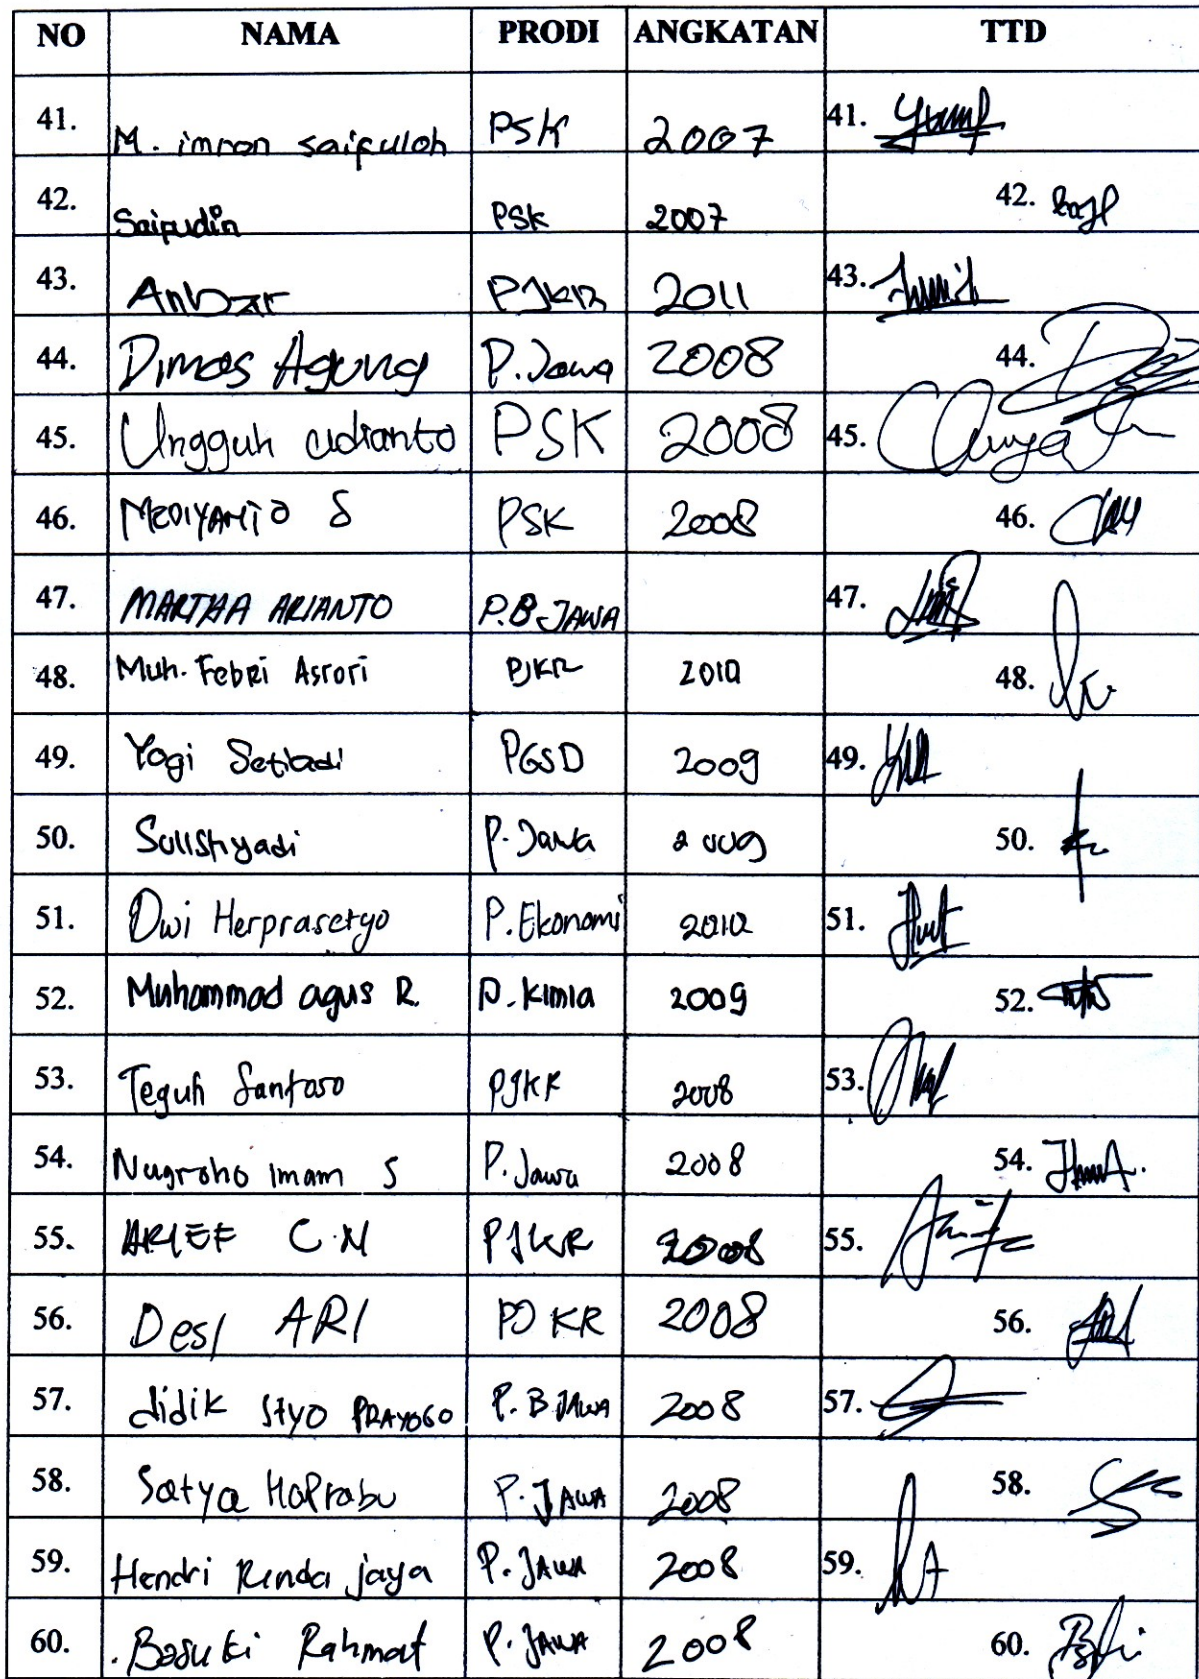 NO NAMA PRODI ANGKATAN TTD
41. M. imron saifuloh PSK 2007 41.
42. Saifudin PSK 2007 42.
43. Anbar PJKR 2011 43.
44. Dimas Agung P. Jawa 2008 44.
45. Ungguh udianto PSK 2008 45.
46. MEDIYANTO S PSK 2008 46.
47. MARTHA ARIANTO P.B JAWA 47.
48. Muh. Febri Asrori PJKR 2010 48.
49. Yogi Setiadi PGSD 2009 49.
50. P. Jawa 2009 50.
51. Dwi Herprasetyo P. Ekonomi 2010 51.
52. Muhammad agus R. P. Kimia 2009 52.
53. Teguh Santoso PJKR 2008 53.
54. Nugroho imam S P. Jawa 2008 54.
55. ARIEF C.N PJKR 2008 55.
56. Desi ARI PJKR 2008 56.
57. didik styo PRAYOGO P. B JAWA 2008 57.
58. Satya HaPrabu P. JAWA 2008 58.
59. Hendri Renda jaya P. JAWA 2008 59.
60. Basuki Rahmat P. JAWA 2008 60.